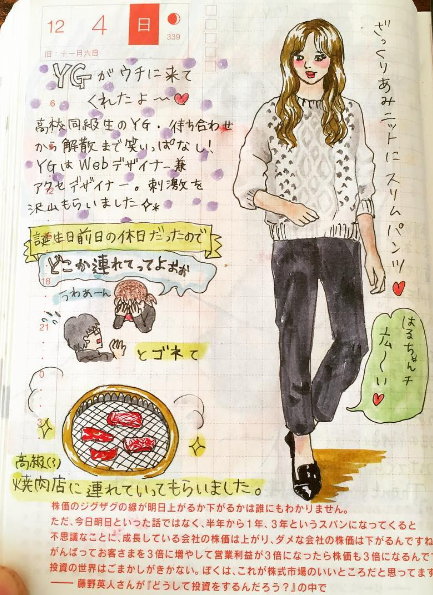 12 4 日
339
旧:十一月六日
YGがウチに来て
くれたよ〜
高校同級生のYG。待ち合わせ
から解散まで笑いっぱなし!
YGはWebデザイナー兼
アクセデザイナー。刺激を
沢山もらいました
誕生日前日の休日だったので
どこか連れてってよぉぉ
うわあーん
とゴネて
高級(?)
焼肉店に連れていってもらいました。
6
18
21
ざっくりあみニットにスリムパンツ
はるちゃんチ
広〜い
株価のジグザグの線が明日上がるか下がるかは誰にもわかりません。
ただ、今日明日といった話ではなく、半年から1年、3年というスパンになってくると
不思議なことに、成長している会社の株価は上がり、ダメな会社の株価は下がるんですね
がんばってお客さまを3倍に増やして営業利益が3倍になったら株価も3倍になるんです
投資の世界はごまかしがきかない。ぼくは、これが株式市場のいいところだと思ってます
―― 藤野英人さんが『どうして投資をするんだろう?』の中で